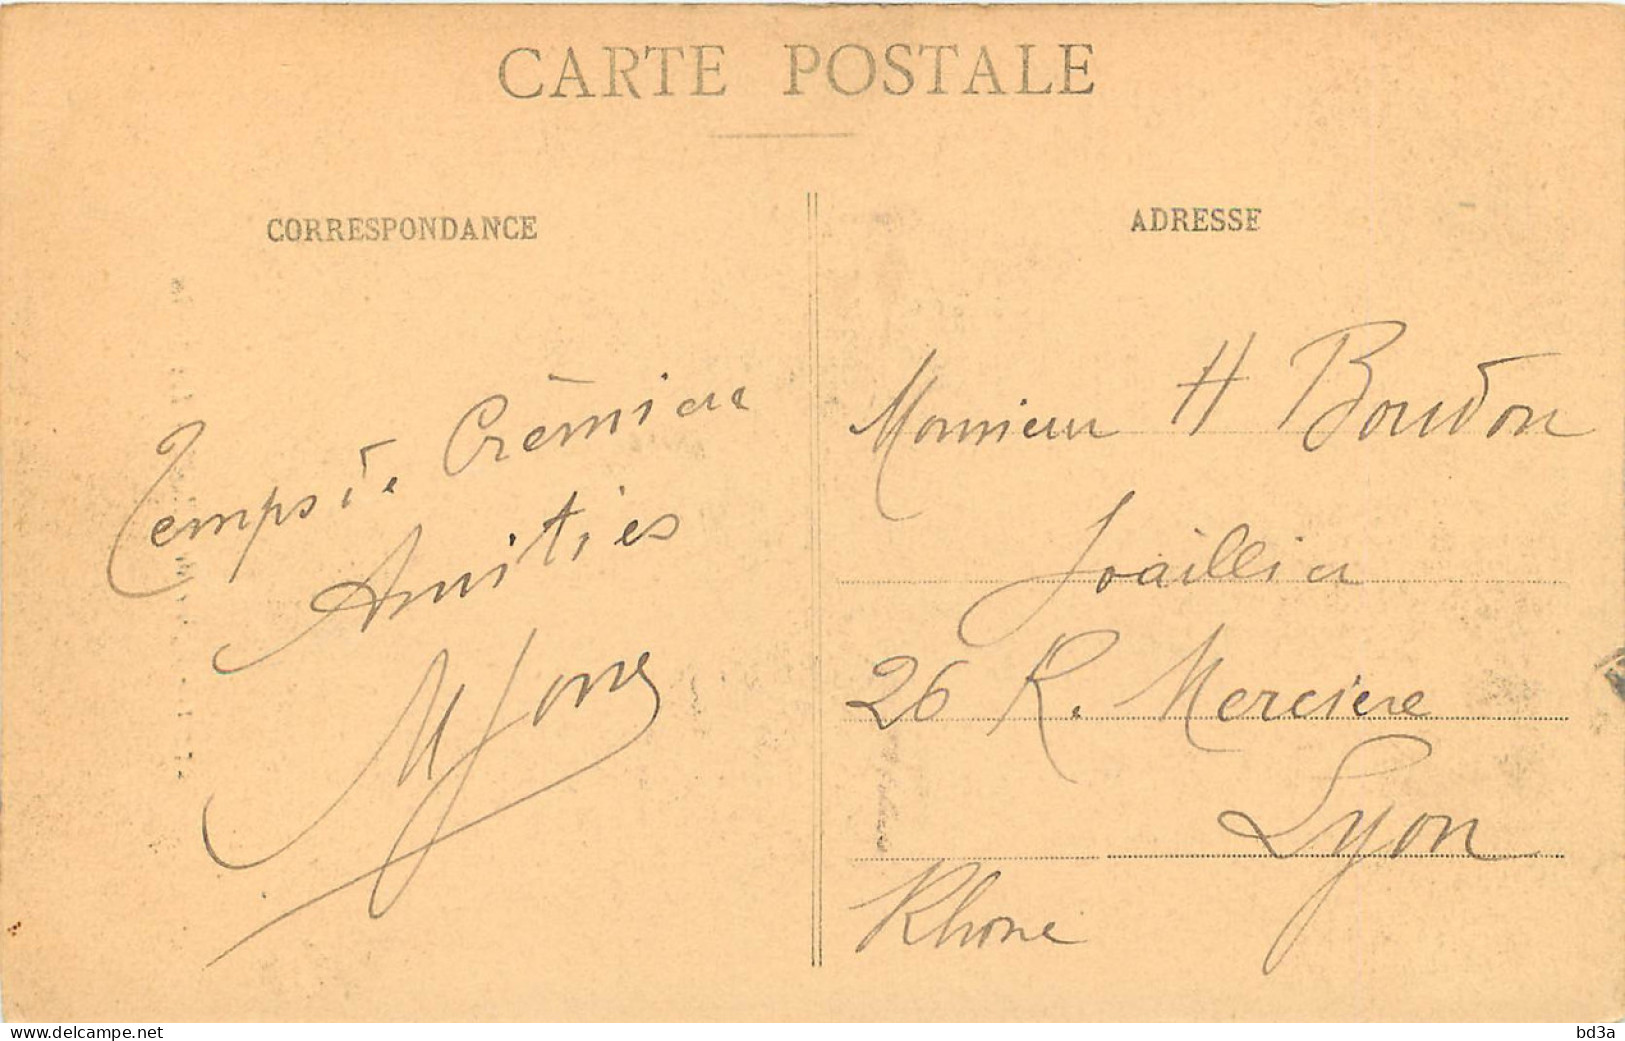 CARTE POSTALE
CORRESPONDANCE
Crèmieu
Amitiés
ADRESSE
Monsieur H Boudon
Joaillier
26 R. Merciere
Lyon
Rhone
www.delcampe.net
bd3a